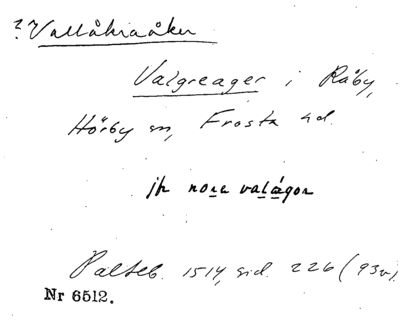 ? Vallåkraåker
Valgreager i Råby,
Hörby sn, Frosta hd.
jfr nora valågor
Palteb. 1514, sid. 226 (93v).
Nr 6512.